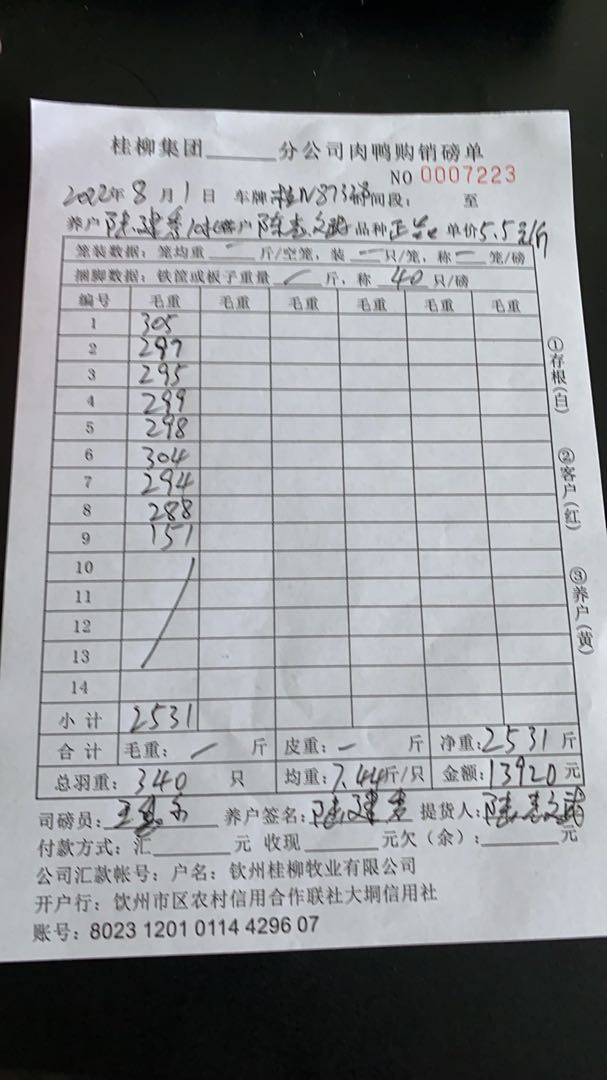 桂柳集团______分公司肉鸭购销磅单
NO 0007223
2022年8月1日 车牌 桂N873 时间段： 至
养户 陆建 客户 陈志文 品种 正品 单价5.5元/斤
笼装数据：笼均重 一 斤/空笼，装 一 只/笼，称 一 笼/磅
捆脚数据：铁筐或板子重量 / 斤，称 40 只/磅
编号 毛重 毛重 毛重 毛重 毛重 毛重
1 305
2 297
3 295
4 299
5 298
6 304
7 294
8 288
9 151
10
11
12
13
14
小计 2531
合计 毛重：一 斤 皮重：一 斤 净重：2531斤
总羽重：340 只 均重：7.44斤/只 金额：13920元
司磅员： 养户签名：陆建 提货人：陈志文
付款方式：汇______元 收现______元欠（余）：______元
公司汇款帐号：户名：钦州桂柳牧业有限公司
开户行：钦州市区农村信用合作联社大垌信用社
账号：8023 1201 0114 4296 07
①存根(白)
②客户(红)
③养户(黄)